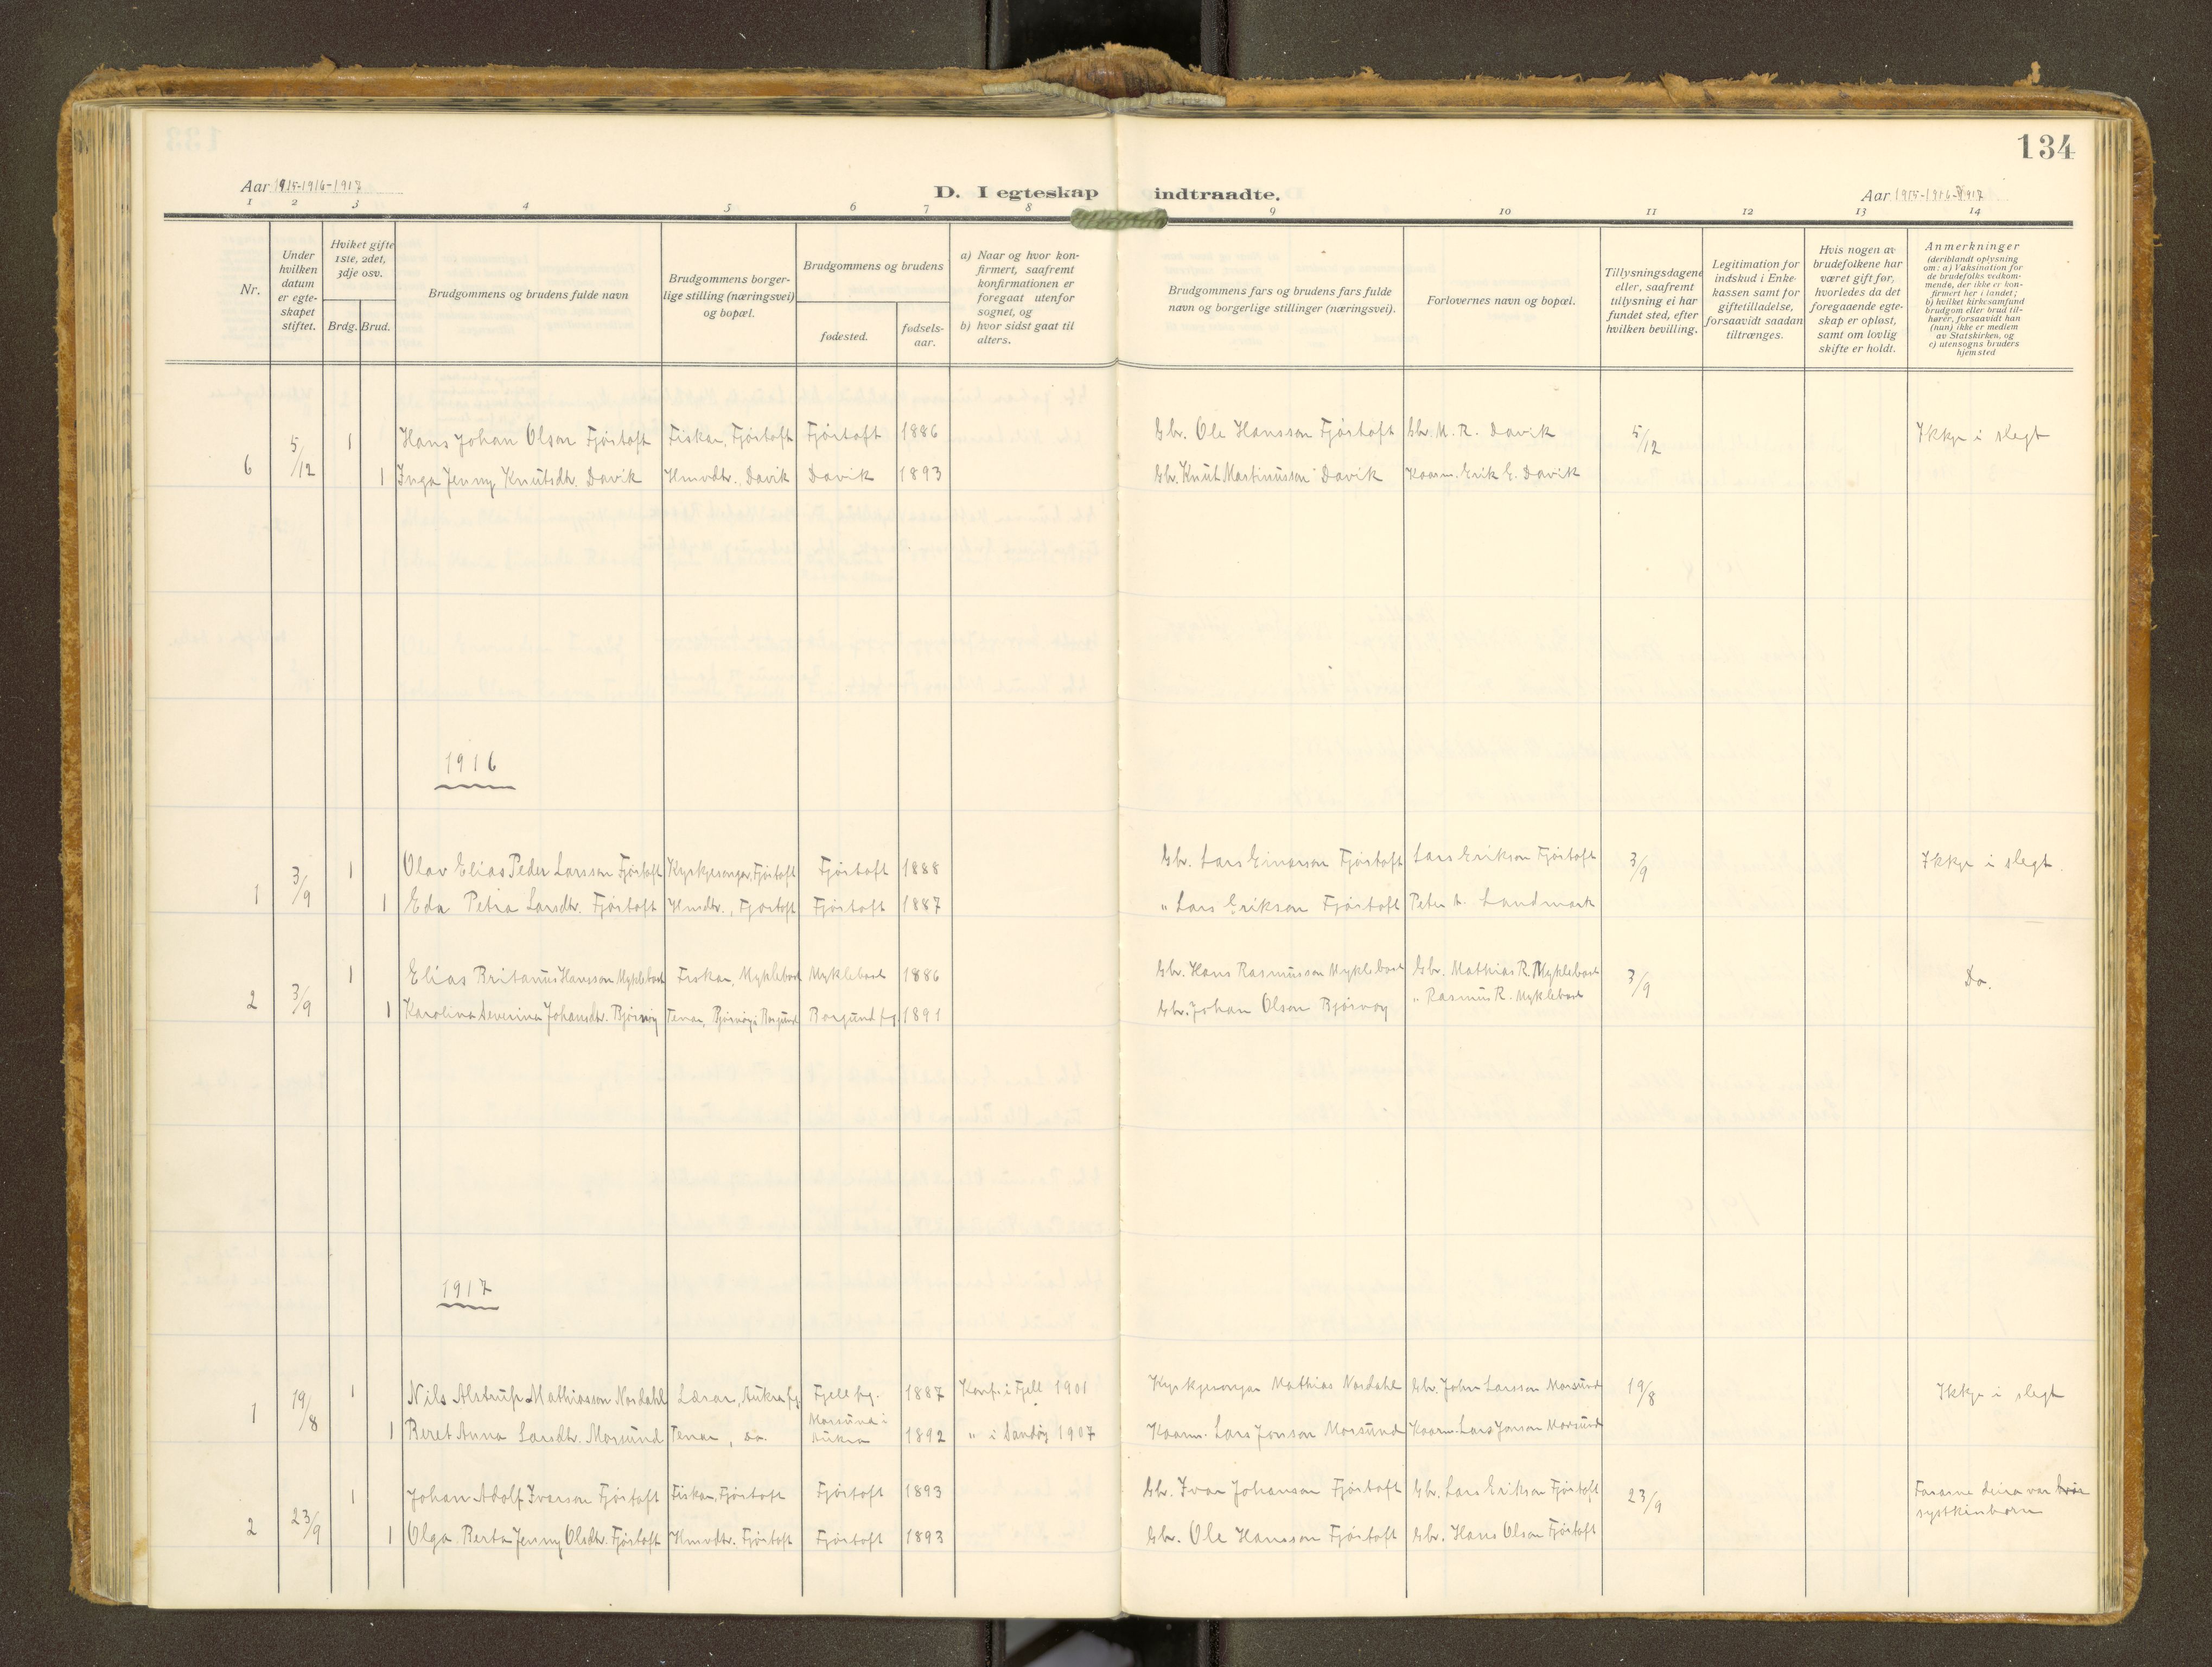 134
Aar 1915-1916-1917
D. I egteskap indtraadte.
Aar 1915-1916-1917
1 2 3 4 5 6 7 8 9 10 11 12 13 14
Nr.
Under hvilken datum er egteskapet stiftet.
Hviket gifte 1ste, 2det, 3dje osv.
Brdg. Brud.
Brudgommens og brudens fulde navn
Brudgommens borgerlige stilling (næringsvei) og bopæl.
Brudgommens og brudens
fødested. fødselsaar.
a) Naar og hvor konfirmert, saafremt konfirmationen er foregaat utenfor sognet, og
b) hvor sidst gaat til alters.
Brudgommens fars og brudens fars fulde navn og borgerlige stillinger (næringsvei).
Forlovernes navn og bopæl.
Tillysningsdagene eller, saafremt tillysning ei har fundet sted, efter hvilken bevilling.
Legitimation for indskud i Enkekassen samt for giftetilladelse, forsaavidt saadan tiltrænges.
Hvis nogen av brudefolkene har været gift før, hvorledes da det foregaaende egteskap er opløst, samt om lovlig skifte er holdt.
Anmerkninger (deriblandt oplysning om: a) Vaksination for de brudefolks vedkommende, der ikke er konfirmert her i landet; b) hvilket kirkesamfund brudgom eller brud tilhører, forsaavidt han (hun) ikke er medlem av Statskirken, og c) utensogns bruders hjemsted
6 5/12 1 Hans Johan Olson Fjørtoft Fiskar, Fjørtoft Fjørtoft 1886 Gbr. Ole Hansson Fjørtoft Gbr. M. R. Davik 5/12 Ikkje i slegt
1 Inga Jenny Knutsdtr. Davik Hmvdtr., Davik Davik 1893 Gbr. Knut Martinusson Davik Kaarm. Erik E. Davik
1916
1 3/9 1 Olav Elias Peder Larsson Fjørtoft Kyrkjesongar, Fjørtoft Fjørtoft 1888 Gbr. Lars Einarson Fjørtoft Lars Erikson Fjørtoft 3/9 Ikkje i slegt.
1 Eda Petra Larsdtr. Fjørtoft Hmsdtr., Fjørtoft Fjørtoft 1887 " Lars Erikson Fjørtoft Peter A. Landmark
2 3/9 1 Elias Britanus Hansson Myklebost Fiskar, Myklebost Myklebost 1886 Gbr. Hans Rasmusson Myklebost Gbr. Mathias R. Myklebost 3/9 Do.
" Rasmus R. Myklebost
1 Karolina Severina Johansdtr. Bjørnøy Tenar, Bjørnøy i Borgund Borgund pg. 1891 Gbr. Johan Olson Bjørnøy
1917
1 19/8 1 Nils Alstrup Mathiasson Nordahl Lærar, Aukra pg. Fjell pg. 1887 Konf. i Fjell 1901 Kyrkjesongar Mathias Nordahl Gbr. John Larsson Morsund 19/8 Ikkje i slegt
1 Beret Anna Larsdtr. Morsund Tenar, do. Morsund i Aukra 1892 " i Sandøy 1907 Kaarm. Lars Jonson Morsund Kaarm. Lars Jonson Morsund
2 23/9 1 Johan Adolf Ivarson Fjørtoft Fiskar, Fjørtoft Fjørtoft 1893 Gbr. Ivar Johanson Fjørtoft Gbr. Lars Erikson Fjørtoft 23/9 Fararne deira var syskinborn
1 Olga Berta Jenny Olsdtr. Fjørtoft Hmvdtr. Fjørtoft Fjørtoft 1893 Gbr. Ole Hansson Fjørtoft Gbr. Hans Olson Fjørtoft